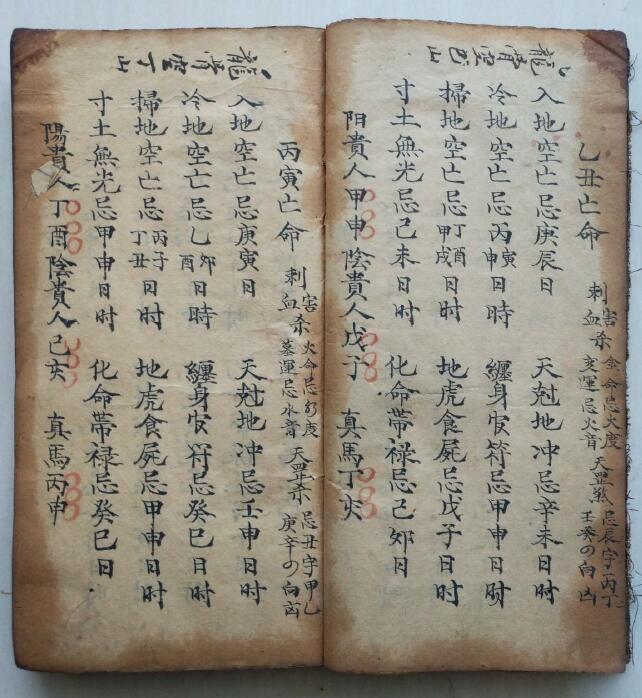 龍霄空巳山
乙丑亡命
刺血杀
害 金命忌火度
变運忌火音
天罡煞 忌辰字丙丁
壬癸の向凶
入地空亡忌庚辰日
天尅地冲忌辛未日时
冷地空亡忌丙寅申日時
纏身官符忌甲申日时
掃地空亡忌丁酉甲戌日时
地虎食屍忌戊子日时
寸土無光忌己未日时
化命帶禄忌己卯日
阳貴人甲申陰貴人戊子 真馬丁亥
龍霄空丁山
丙寅亡命
刺血杀
害 火命忌水度
墓運忌水音
天罡杀 忌丑字甲乙
庚辛の向凶
入地空亡忌庚寅日
天尅地冲忌壬申日时
冷地空亡忌乙卯酉日時
纏身官符忌癸巳日时
掃地空亡忌丙子丁丑日时
地虎食屍忌甲申日时
寸土無光忌甲申日时
化命帶禄忌癸巳日
陽貴人丁酉陰貴人己亥 真馬丙申